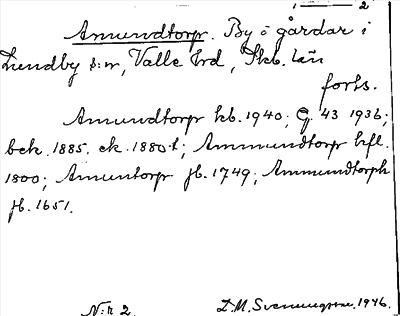 1 — 2
Amundtorp. By o gårdar i
Lundby s:n, Valle hrd, Skb. län
forts.
Amundtorp kb. 1940; G. 43 1936;
bek. 1885. ek. 1880 t; Ammundtorp hfl.
1800; Amuntorp jb. 1749; Ammundtorph
jb. 1651.
N:r 2. D.M. 1946.